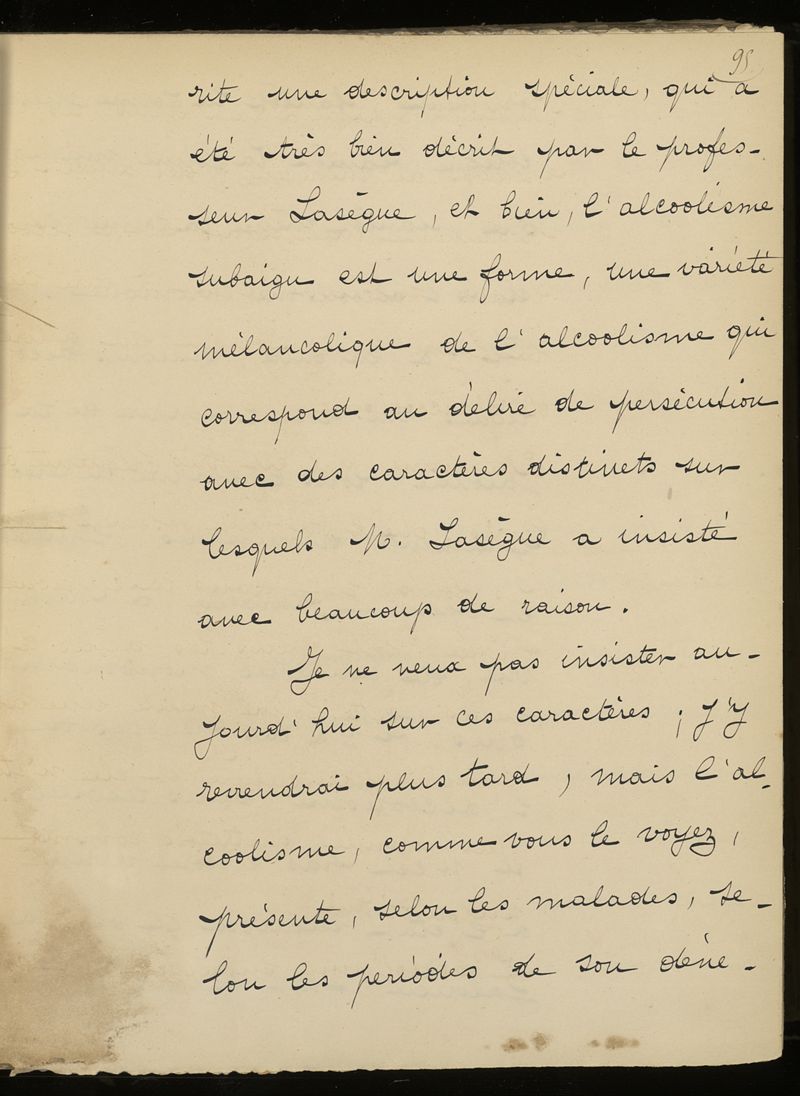 95
rite une description spéciale, qui a
été très bien décrit par le profes-
seur Lasègue, et bien, l'alcoolisme
subaigu est une forme, une variété
mélancolique de l'alcoolisme qui
correspond au délire de persécution
avec des caractères distincts sur
lesquels M. Lasègue a insisté
avec beaucoup de raison.
Je ne veux pas insister au-
jourd'hui sur ces caractères ; j'y
reviendrai plus tard, mais l'al-
coolisme, comme vous le voyez,
présente, selon les malades, se-
lon les périodes de son déve-